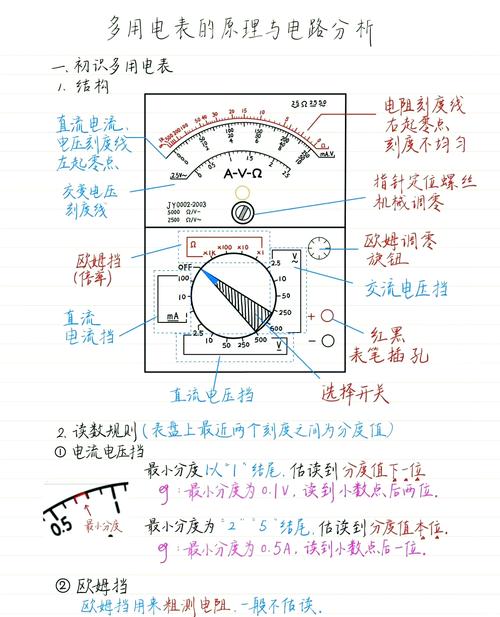 多用电表的原理与电路分析
一.初识多用电表
1. 结构
直流电流、
电压刻度线
左起零点
交变电压
刻度线
欧姆挡
(倍率)
直流
电流挡
直流电压挡
电阻刻度线
右起零点
刻度不均匀
指针定位螺丝
机械调零
欧姆调零
旋钮
交流电压挡
红黑
表笔插孔
选择开关
A-V-Ω
JY0002-2003
5000 Ω/V-
2500 Ω/V~
Ω
×1K ×100 ×10 ×1
OFF
100
10
1
mA
2.5 10 50 250 500
V
2.5
10
50
250
500
V
+
-
2. 读数规则(表盘上最近两个刻度之间为分度值)
① 电流电压挡
最小分度以"1"结尾,估读到分度值下一位
eg:最小分度为0.1V,读到小数点后两位.
0.5 1
最小分度
最小分度为"2""5"结尾,估读到分度值本位.
eg:最小分度为0.5A,读到小数点后一位.
② 欧姆挡
欧姆挡用来粗测电阻,一般不估读.